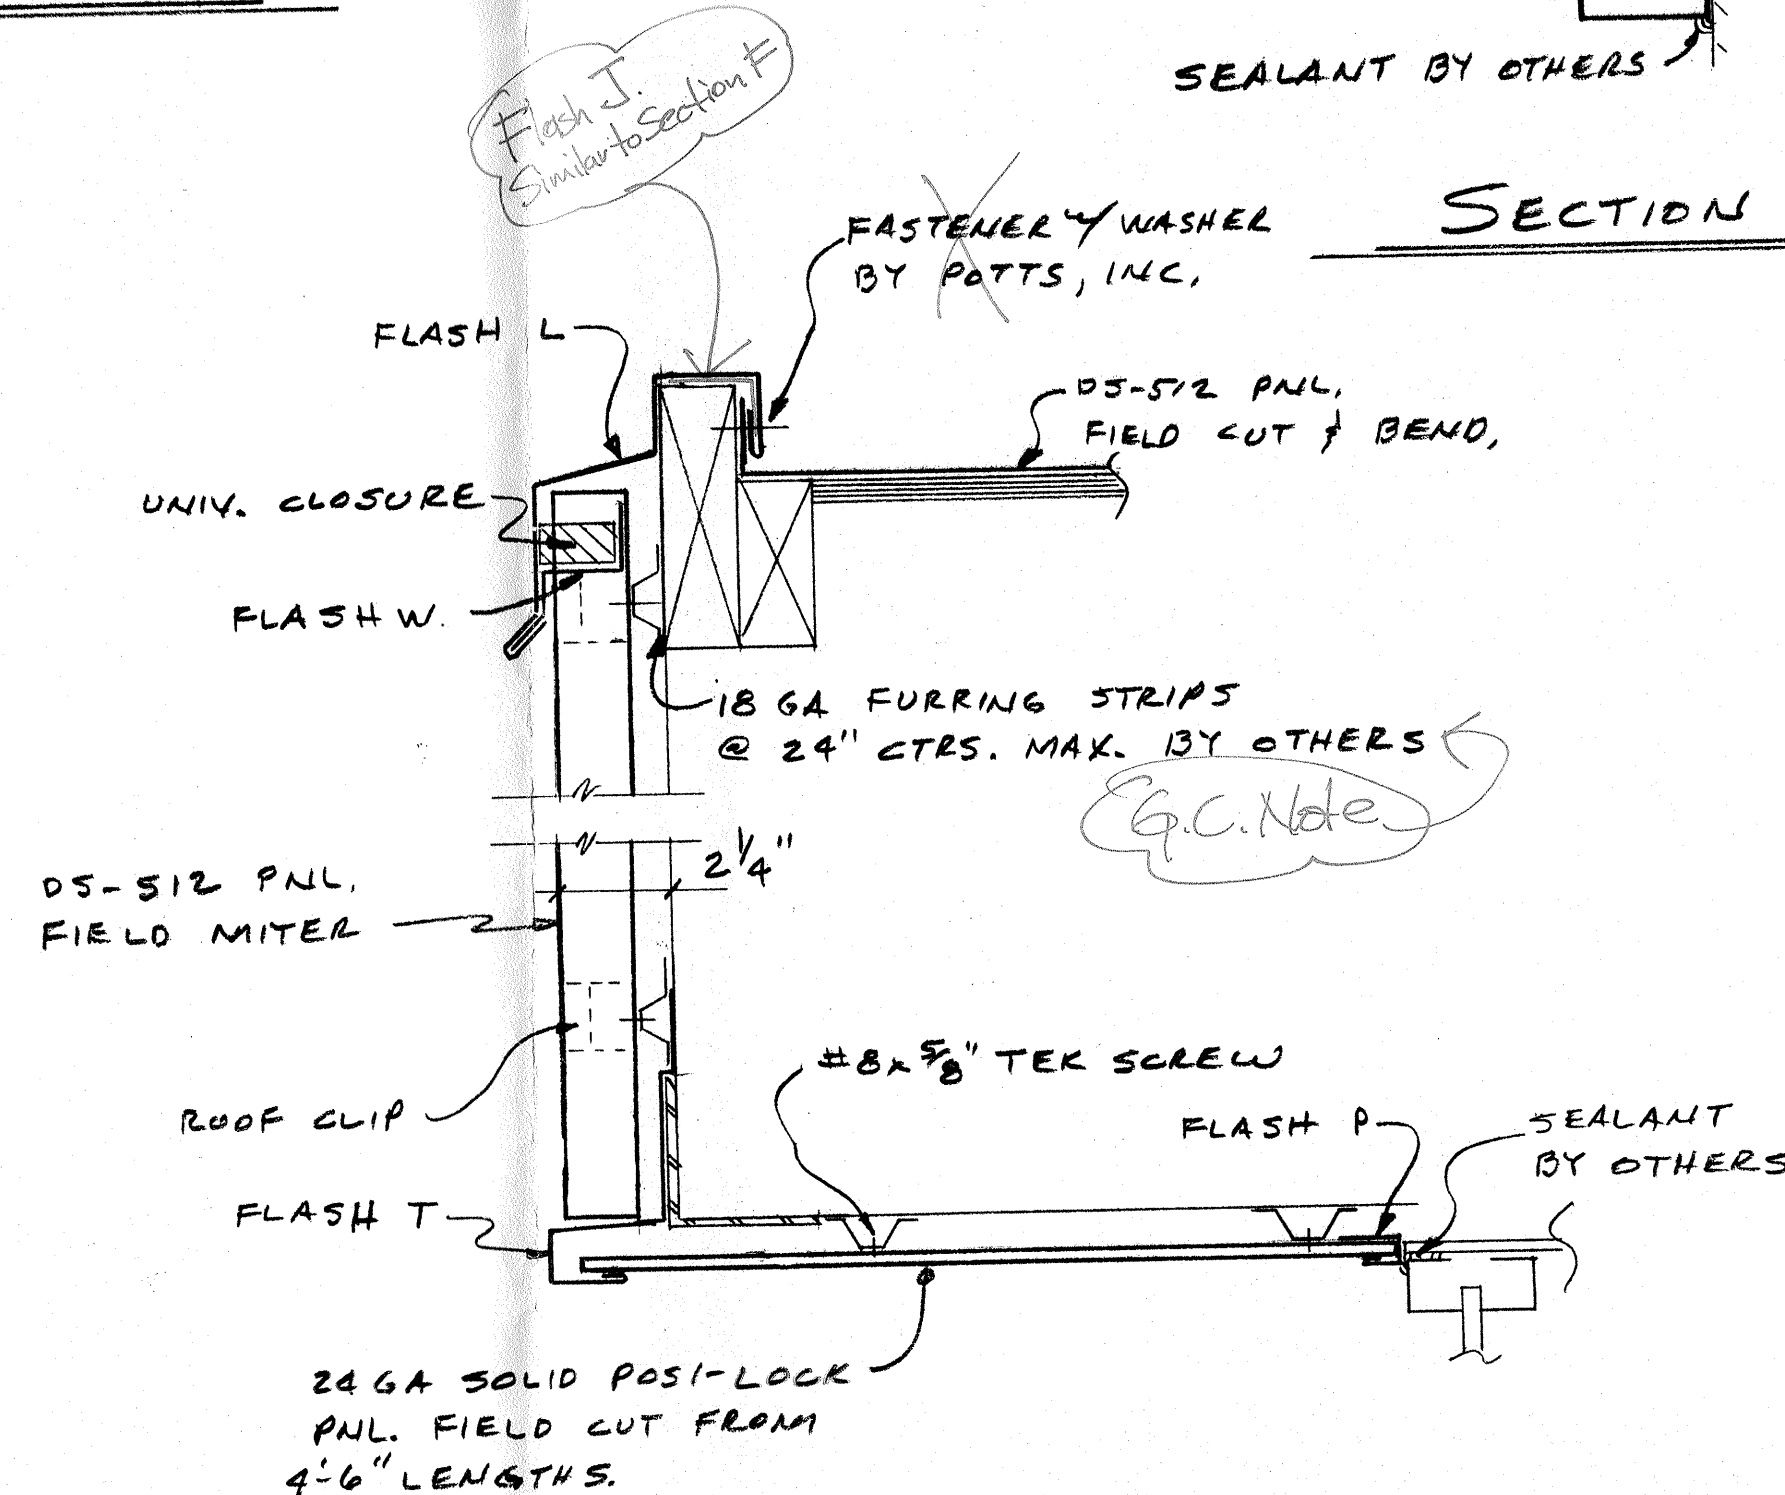 SEALANT BY OTHERS
Flash J.
Similar to Section F
SECTION
FASTENER W/ WASHER
BY POTTS, INC.
FLASH L
DS-512 PNL.
FIELD CUT & BEND.
UNIV. CLOSURE
FLASH W.
18 GA FURRING STRIPS
@ 24" CTRS. MAX. BY OTHERS
G.C. Note
2 1/4"
DS-512 PNL.
FIELD MITER
#8 x 5/8" TEK SCREW
ROOF CLIP
FLASH P
SEALANT
BY OTHERS
FLASH T
24 GA SOLID POSI-LOCK
PNL. FIELD CUT FROM
4'-6" LENGTHS.